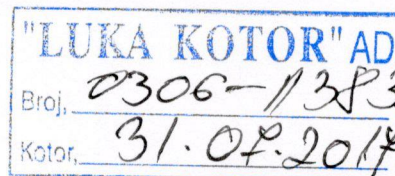 "LUKA KOTOR" AD
Broj, 0306-11383
Kotor, 31.07.2017